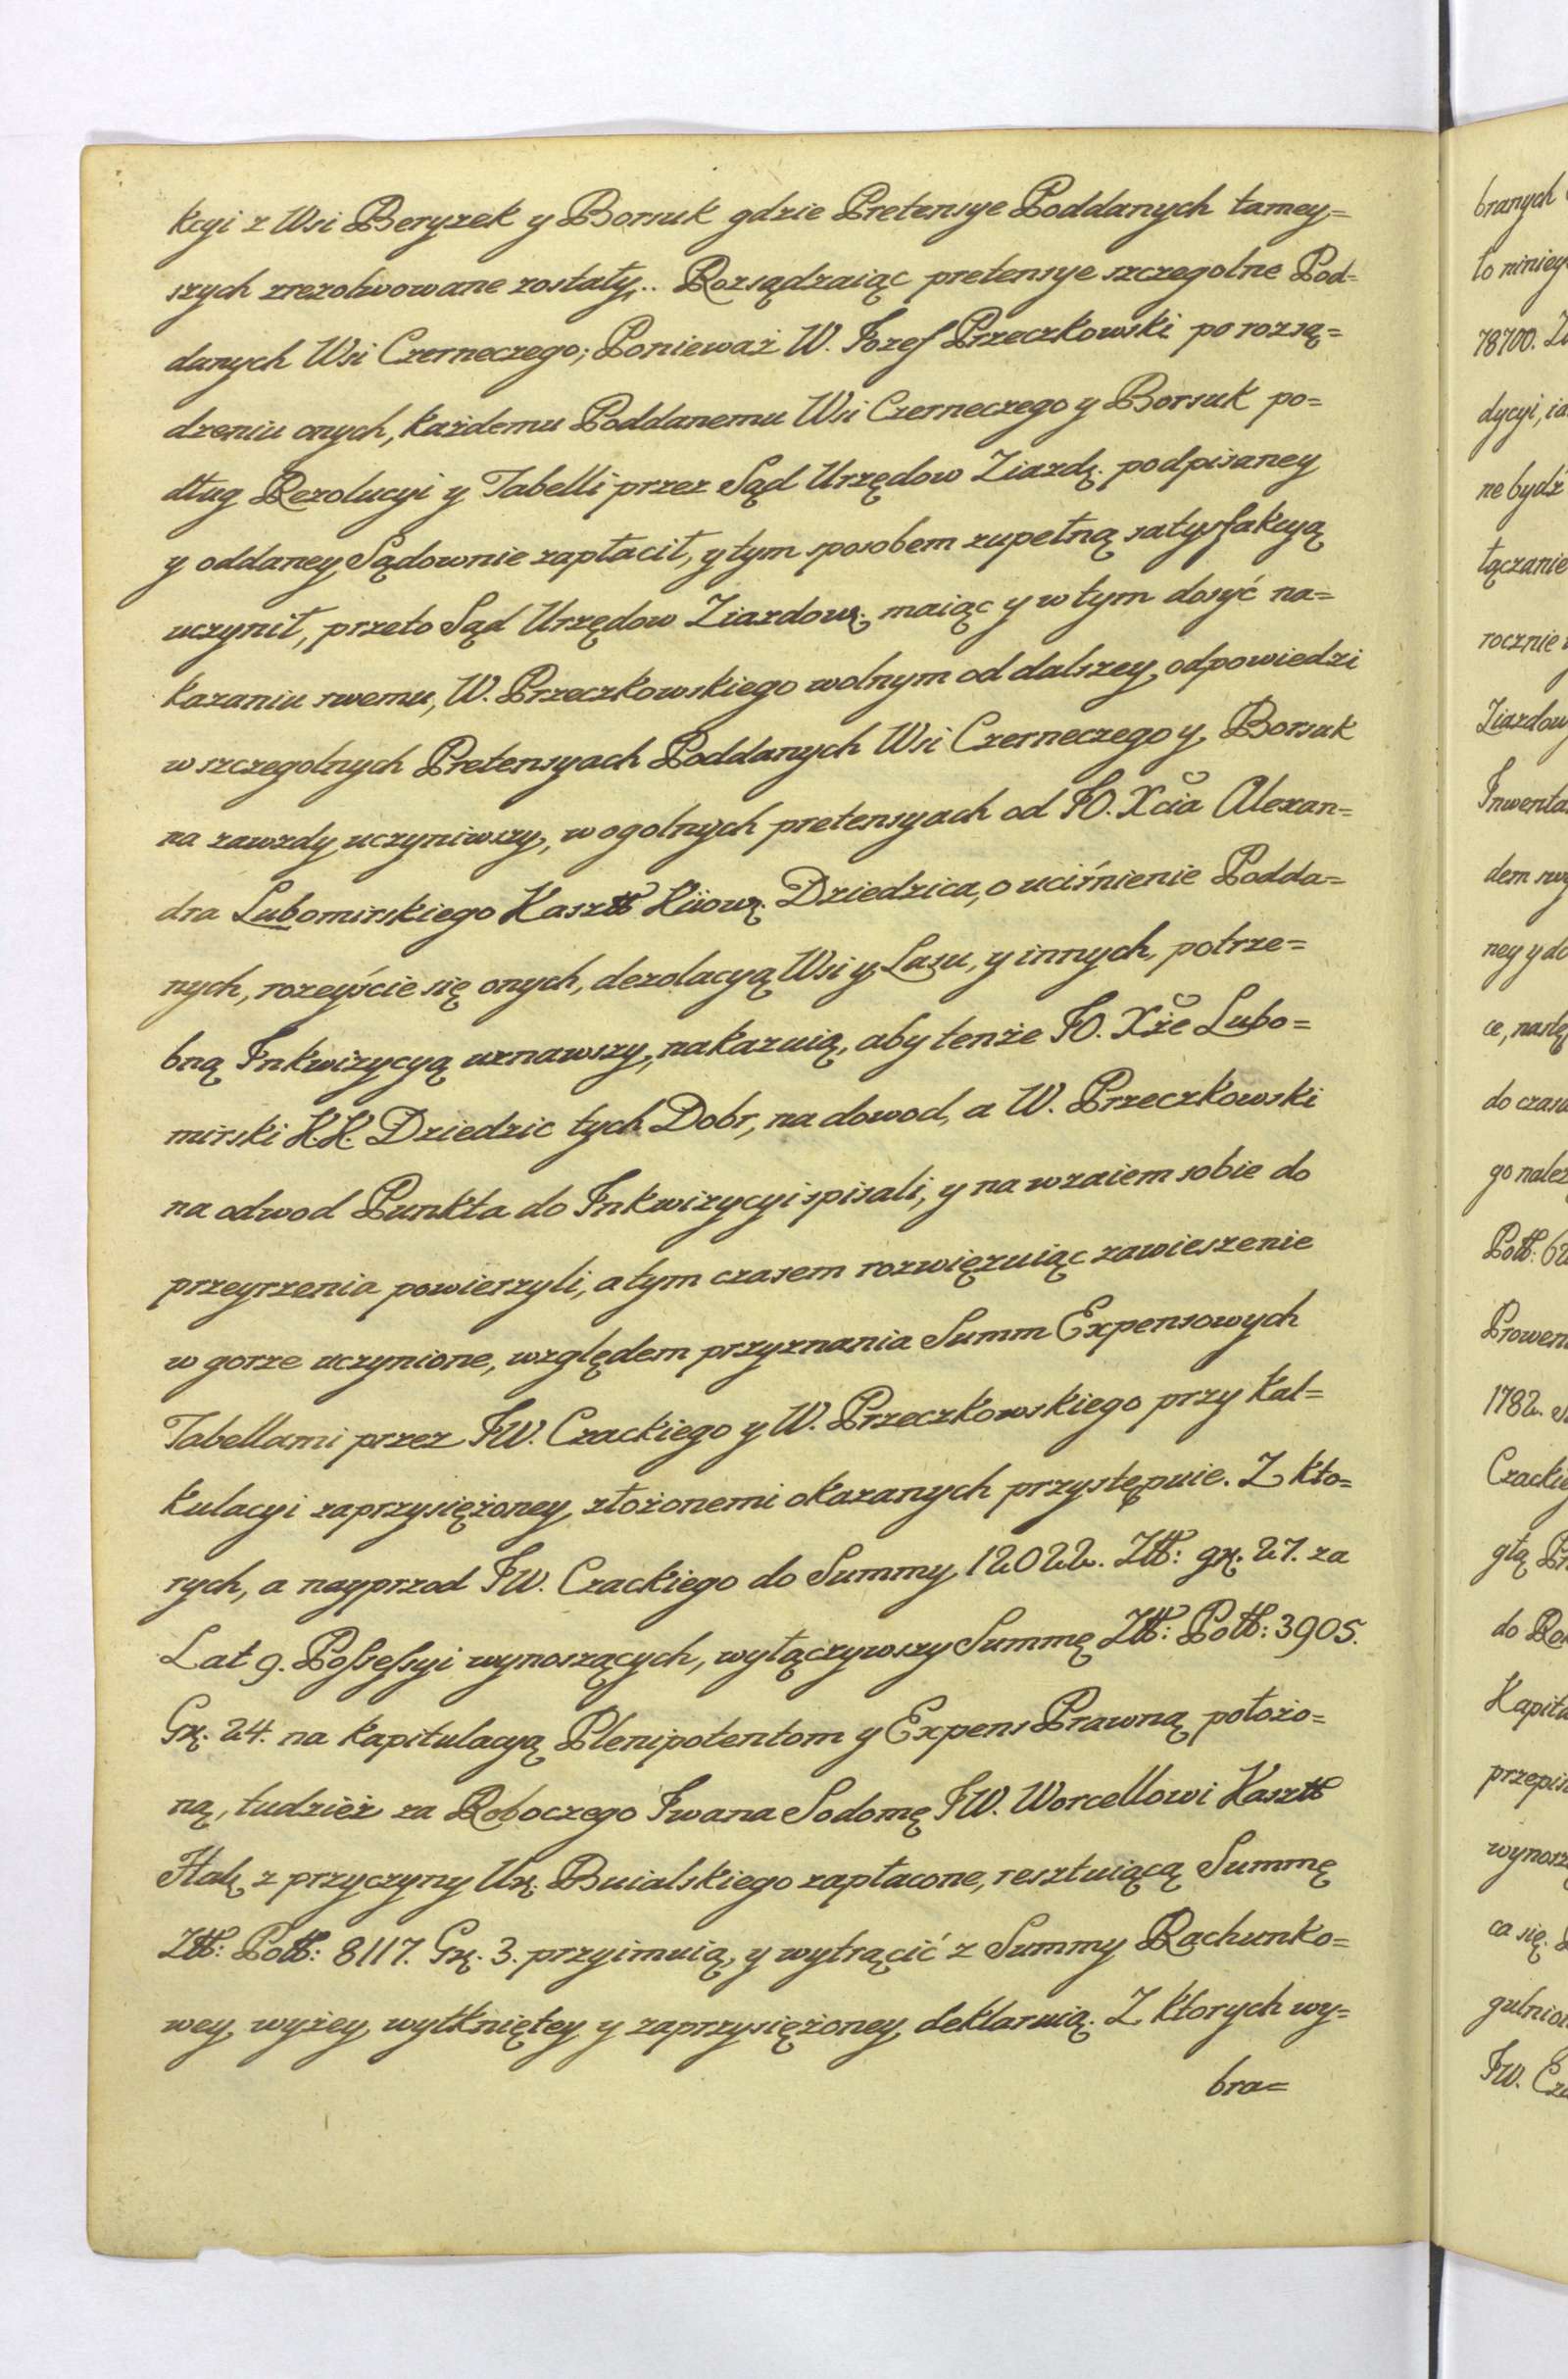 kcyi z Wsi Beryzek y Borsuk gdzie Pretensye Poddanych tamey=
szych zrezolwowane zostały.. Rozsądzaiąc pretensye szczegolne Pod=
danych Wsi Czerneczego; Ponieważ W. Jozef Przeczkowski po rozsą=
dzeniu onych, każdemu Poddanemu Wsi Czerneczego y Borsuk po=
dług Rezolucyi y Tabelli przez Sąd Urzędow Ziazdz. podpisaney
y oddaney Sądownie zapłacił, y tym sposobem zupełną satysfakcyą
uczynił, przeto Sąd Urzędow Ziazdowz. maiąc y w tym dosyć na=
kazaniu swemu, W. Przeczkowskiego wolnym od dalszey odpowiedzi
w szczegolnych Pretensyach Poddanych Wsi Czerneczego y Borsuk
na zawzdy uczyniwszy, w ogolnych pretensyach od JO. Xcia Alexan=
dra Lubomirskiego Kasztt Kiiowz. Dziedzica, o uciśnienie Podda=
nych, rozeyście się onych, dezolacyą Wsi y Lasu, y innych, potrze=
bną Inkwizycyą uznawszy, nakazuią, aby tenże JO. Xże Lubo=
mirski K.K. Dziedzic tych Dobr, na dowod, a W. Przeczkowski
na odwod Punkta do Inkwizycyi spisali, y na wzaiem sobie do
przeyrzenia powierzyli, a tym czasem rozwięzuiąc zawieszenie
w gorze uczynione, względem przyznania Summ Expensowych
Tabellami przez JW. Czackiego y W. Przeczkowskiego przy kal=
kulacyi zaprzysiężoney złożonemi okazanych przystępuie. Z kto=
rych, a nayprzod JW. Czackiego do Summy 12022. Złł: gr. 27. za
Lat 9. Possessyi wynoszących, wyłączywszy Summę Złł: Polł: 3905.
Gr. 24. na kapitulacyą Plenipotentom y Expens Prawną położo=
ną, tudzież za Roboczego Iwana Sodomę JW. Worcellowi Kasztt
Hal. z przyczyny Ur. Buialskiego zapłacone, resztuiącą Summę
Złł: Polł: 8117. Gr. 3. przyimuią, y wytrącić z Summy Rachunko=
wey wyżey wytkniętey y zaprzysiężoney deklaruią. Z ktorych wy=
bra=
branych
to niniey
78700.
dycyi, ia
ne bydź
łączanie
rocznie
Ziazdow
Inwenta
dem
ney y do
ce, nastę
do czasu
go należ
Polł: 62
Prowen
1782.
Czackie
głą
do
Kapitu
przepi
wynosz
ca się.
gulnio
JW. Cza